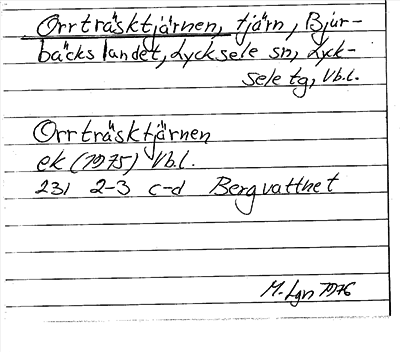 Orrträsktjärnen, tjärn, Bjur-
bäckslandet, Lycksele sn, Lyck-
sele tg, Vb.l.
Orrträsktjärnen
ek (1975) Vb.l.
231 2-3 c-d Bergvattnet
M. Lgn 1976